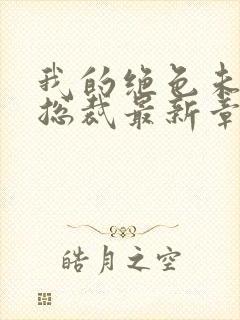 我的绝色未
总裁最新章
皓月之空